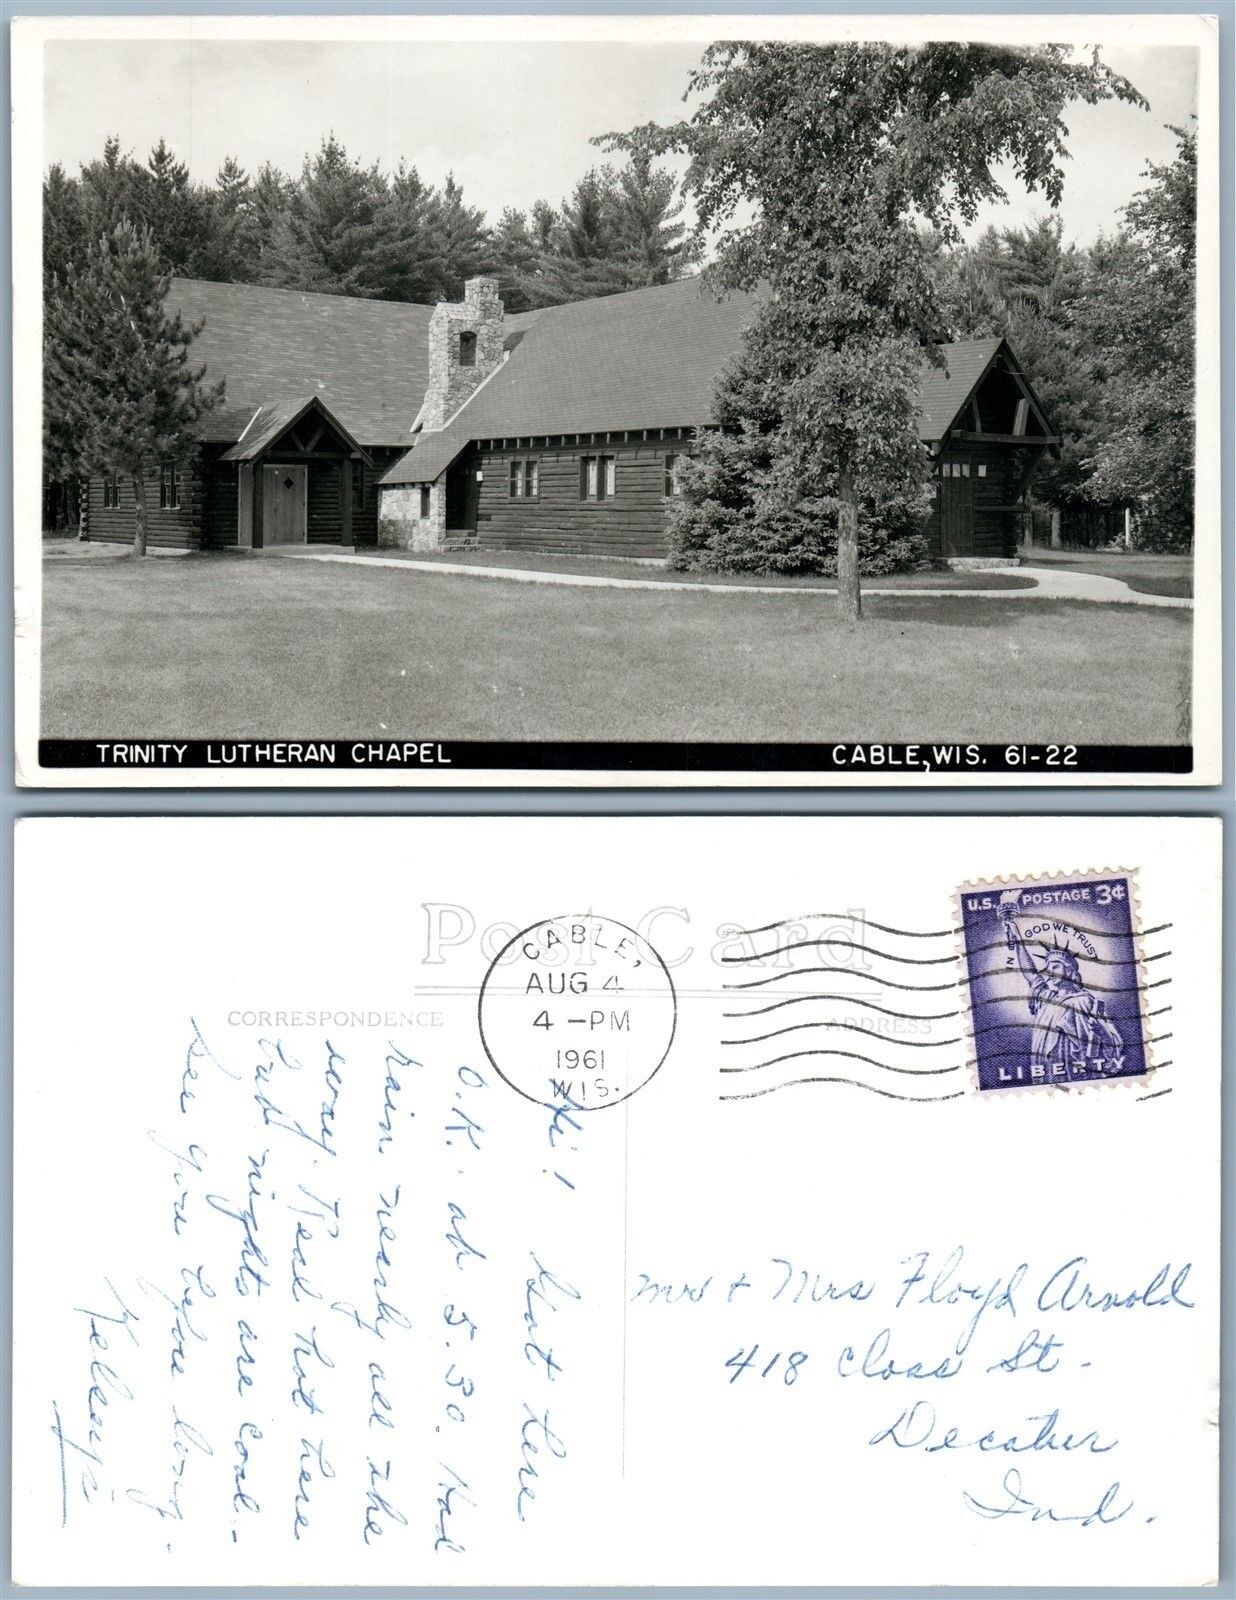 TRINITY LUTHERAN CHAPEL
CABLE, WIS. 61-22
Post Card
CORRESPONDENCE
ADDRESS
CABLE,
AUG 4
4 -PM
1961
WIS.
U.S. POSTAGE 3¢
IN GOD WE TRUST
LIBERTY
Hi! Got here
O.K. at 5.30. Had
rain nearly all the
way. Real hot here
but nights are cool.-
See you before long.-
Kelseys
Mr & Mrs Floyd Arnold
418 Closs St.
Decatur
Ind.